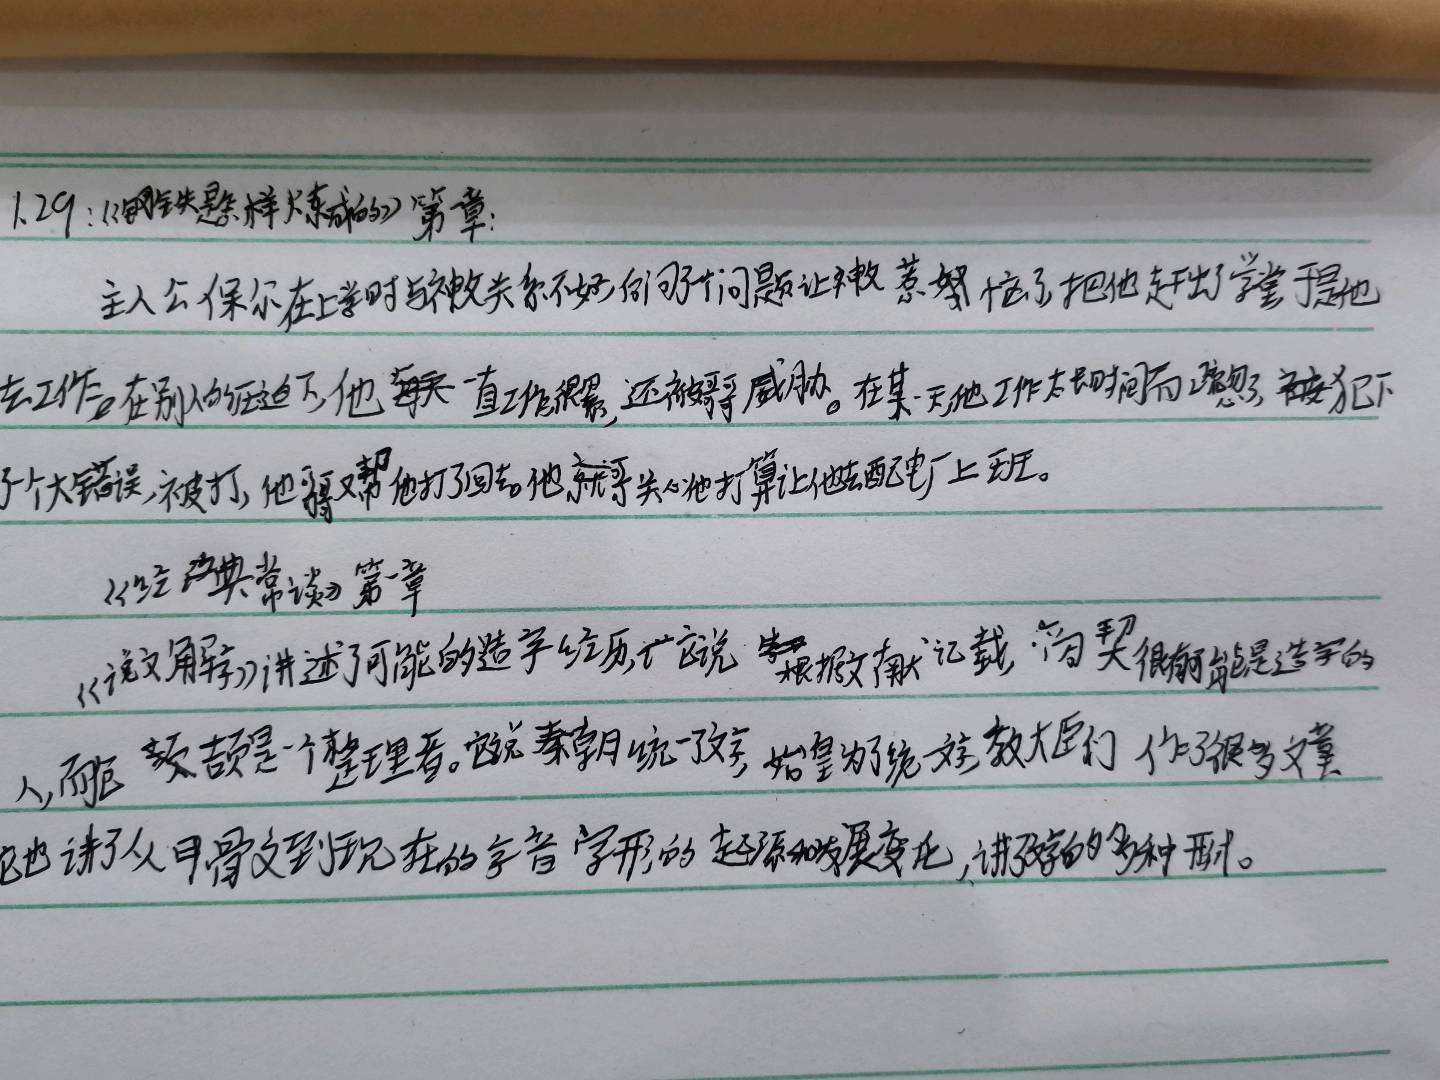 1.29:《钢铁是怎样炼成的》第一章:
主人公保尔在上学时与神父关系不好,向问了个问题让神父惹恼了,把他赶出了学堂于是他
去工作。在别人的压迫下,他一直工作很累,还被哥哥威胁。在某一天,他工作太长时间而疏忽了,犯下
了个大错误,被打,他哥又帮他打了回去。他哥关心他打算让他去配电厂上班。
《经典常谈》第一章
《说文解字》讲述了可能的造字经历,它说根据文献记载,商契很有可能是造字的
人,而颉是一个整理者。它说秦朝统一了文字,始皇为了统一文字,教大臣们作了很多文章
它也讲了从甲骨文到现在的字音字形的起源和发展变化,讲了字的多种形。